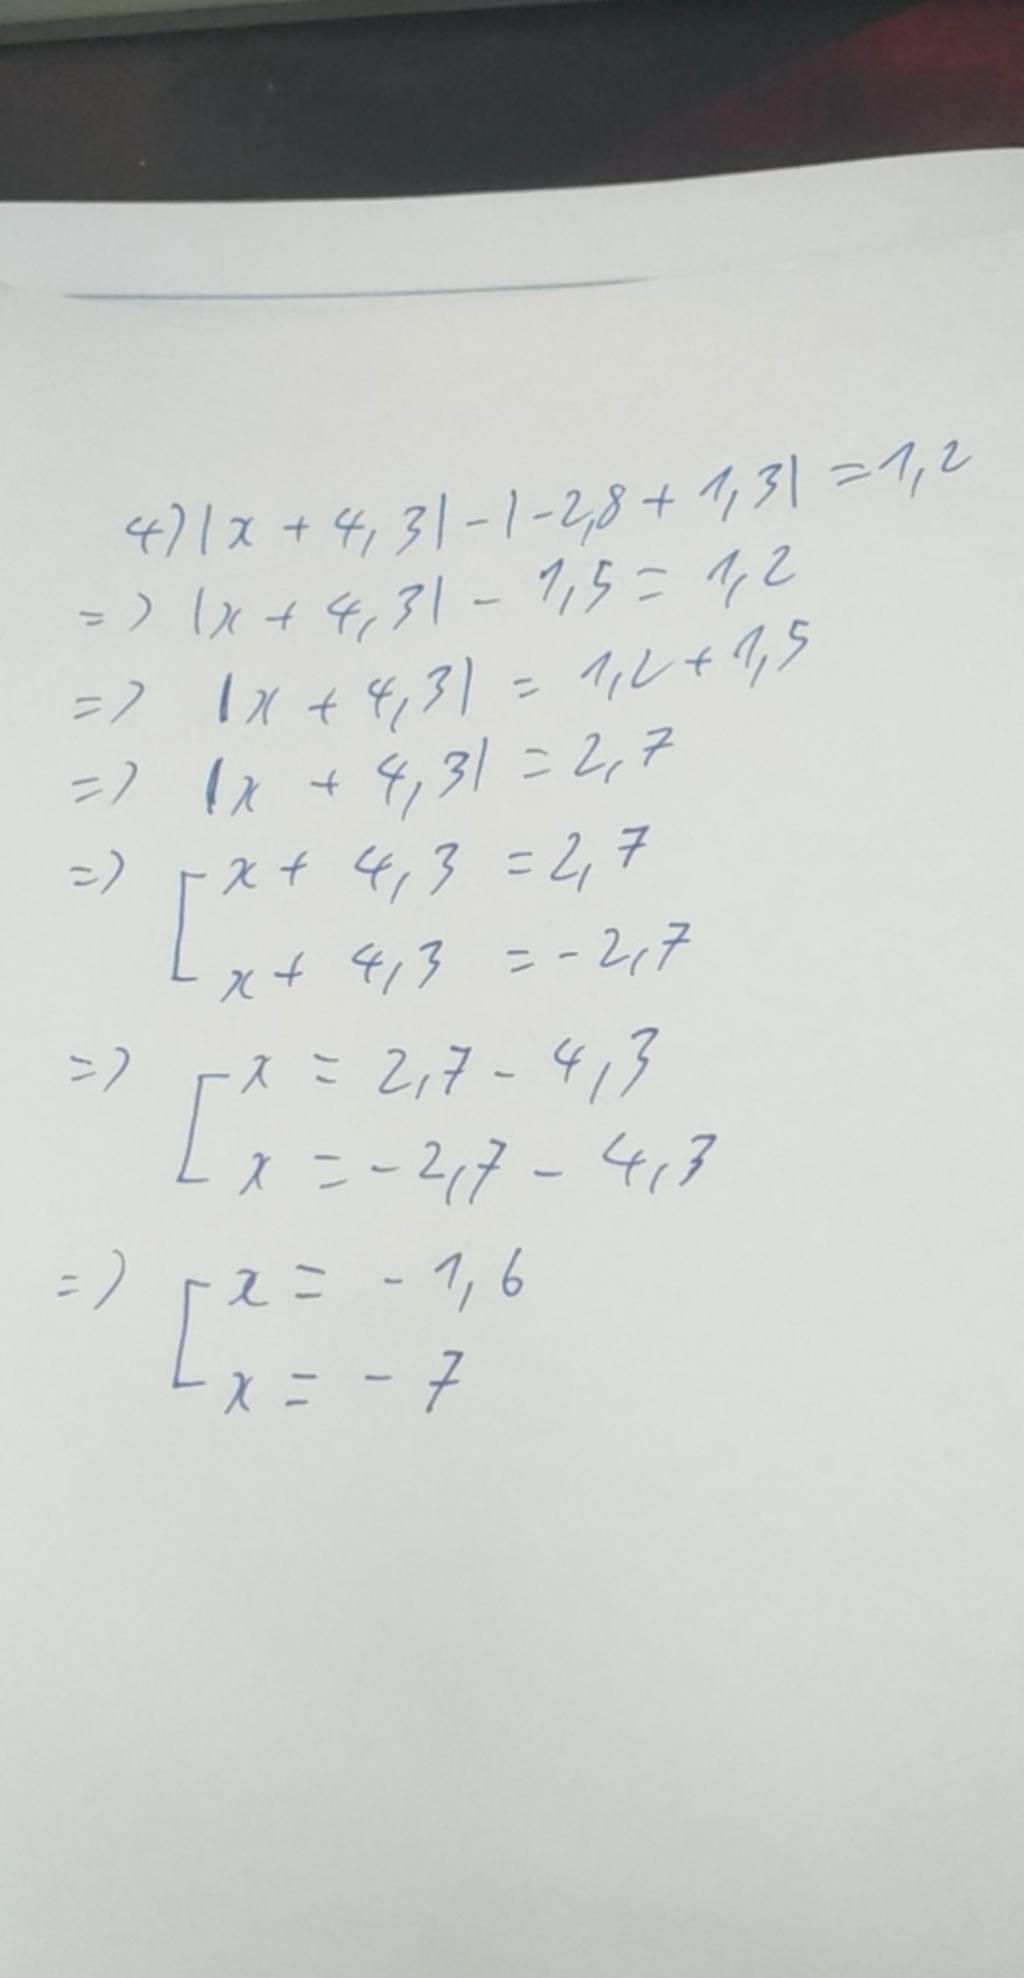 4) |x + 4,3| - |-2,8 + 1,3| = 1,2
=> |x + 4,3| - 1,5 = 1,2
=> |x + 4,3| = 1,2 + 1,5
=> |x + 4,3| = 2,7
=> [ x + 4,3 = 2,7
x + 4,3 = -2,7
=> [ x = 2,7 - 4,3
x = -2,7 - 4,3
=> [ x = -1,6
x = -7